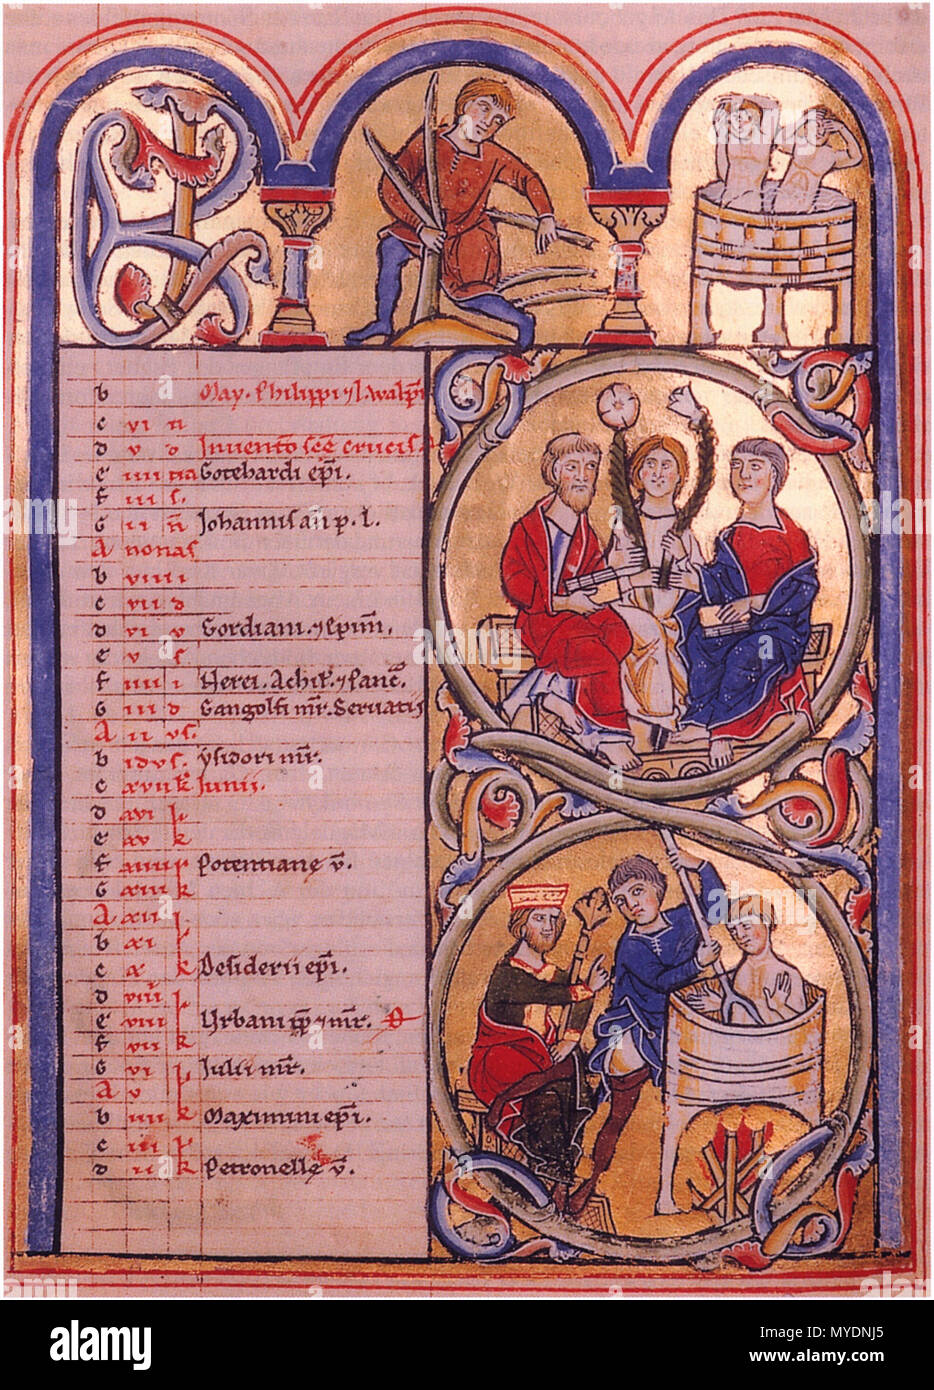 KL
b May. Philippi ⁊ J. Walp̄.
c vi n
d v o Inuentō sc̄e crucis.
e iiii na Gotehardi ep̄i.
f iii s.
G ii n̄ Johannis an̄ p. l.
A nonas
b viii i
c vii d
d vi v Gordiani. ⁊ Epim̄.
e v s
f iiii i Nerei. Achil. ⁊ Panc̄.
G iii d Gangolfi mr̄. Seruatii
A ii vs.
b idvs. ysidori mr̄.
c xvii k Junii.
d xvi l
e xv k
f xiiii l Potentiane v̄.
G xiii k
A xii l
b xi l
c x k Desiderii ep̄i.
d viiii l
e viii l Vrbani pp̄ ⁊ mr̄.
f vii k
G vi l Julii mr̄.
A v
b iiii k Maximini ep̄i.
c iii l
d ii k Petronelle v̄.
alamy
Image ID: MYDNJ5
www.alamy.com